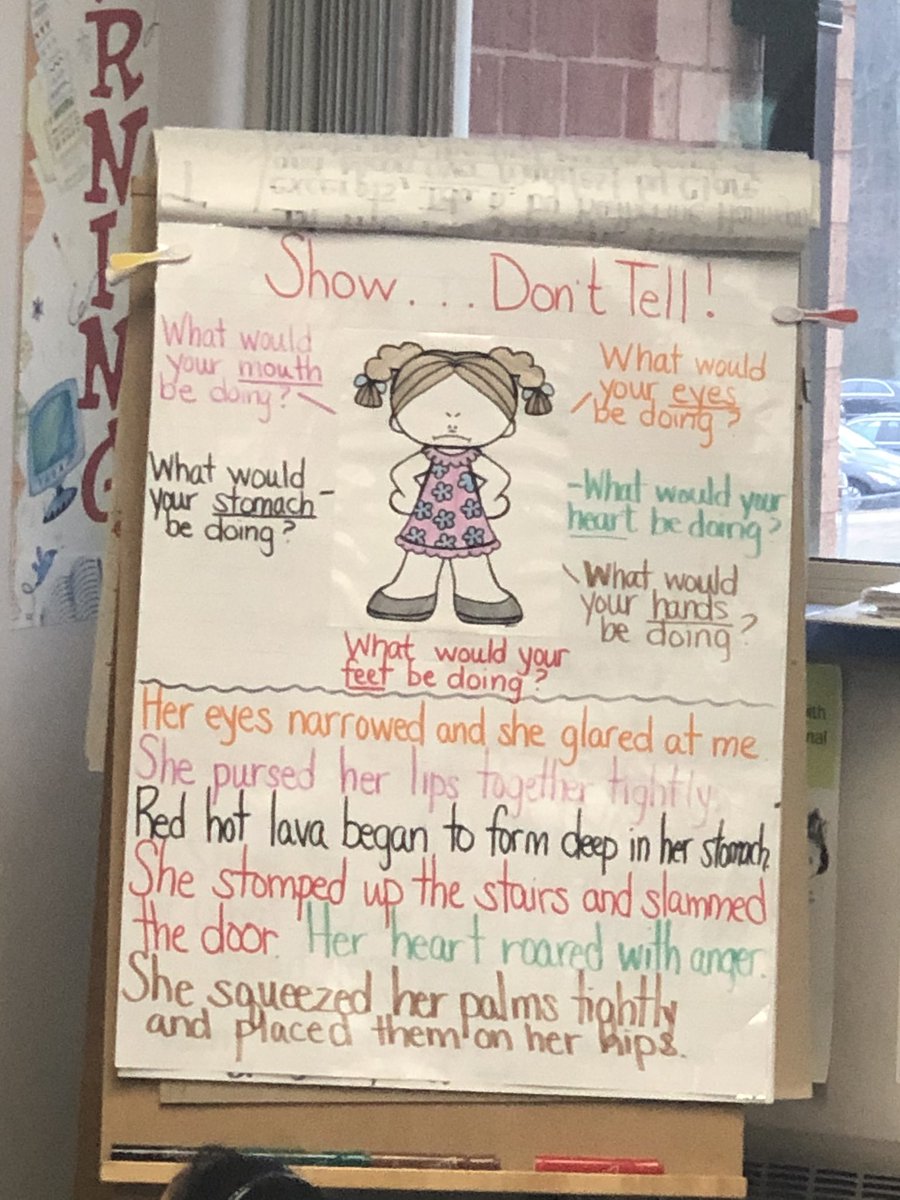 RNING
Show... Don't Tell!
What would
your mouth
be doing?
What would
your eyes
be doing?
What would
your stomach
be doing?
What would your
heart be doing?
What would
your hands
be doing?
What would your
feet be doing?
Her eyes narrowed and she glared at me
She pursed her lips together tightly.
Red hot lava began to form deep in her stomach.
She stomped up the stairs and slammed
the door. Her heart roared with anger.
She squeezed her palms tightly
and placed them on her hips.